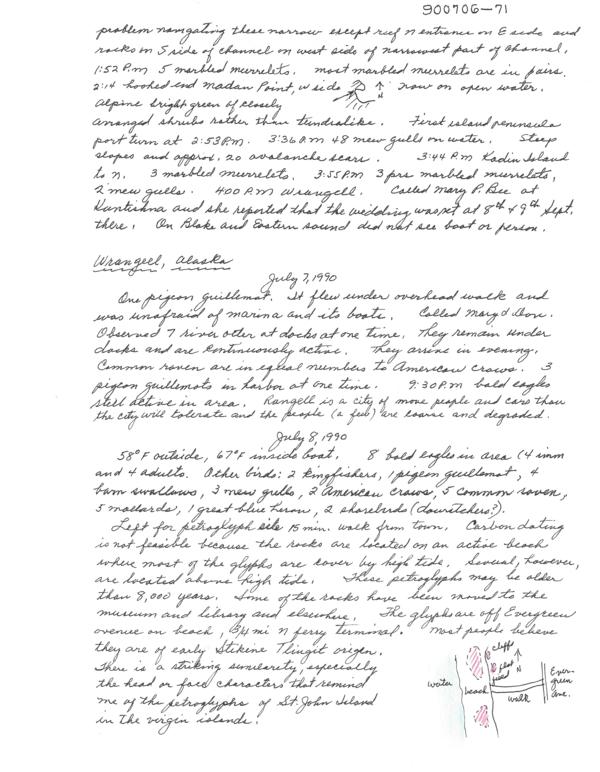 900706-71
problem navigating these narrow except reef n entrance on E side and
rocks on S side of channel on west side of narrowest part of channel.
1:52 P.m 5 marbled murrelets. most marbled murrelets are in pairs.
2:14 hooked end Madan Point, W side N now on open water.
Alpine bright green of closely
arranged shrubs rather than tundralike. First island peninsula
port turn at 2:53 P.m. 3:36 P.m 48 mew gulls on water. Steep
slopes and approx. 20 avalanche scars. 3:44 P.m Kadin Island
to n. 3 marbled murrelets. 3:55 P.M 3 prs marbled murrelets,
2 mew gulls. 400 P.M Wrangell. Called Mary P. Bee at
Kantishna and she reported that the wedding was set at 8th & 9th Sept.
there. On Blake and Eastern sound did not see boat or person.
Wrangell, Alaska
July 7, 1990
One pigeon guillemot. It flew under overhead walk and
was unafraid of marina and its boats. Called Mary &
Observed 7 river otter at docks at one time. They remain under
docks and are continuously active. They arrive in evening.
Common raven are in equal numbers to American crows. 3
pigeon guillemots in harbor at one time. 9:30 P.m bald eagles
still active in area. Rangell is a city of more people and cars than
the city will tolerate and the people (a few) are coarse and degraded.
July 8, 1990
58°F outside, 67°F inside boat. 8 bald eagles in area (4 imm
and 4 adults. Other birds: 2 kingfishers, 1 pigeon guillemot, 4
barn swallows, 3 mew gulls, 2 American crows, 5 common raven,
5 mallards, 1 great blue heron, 2 shorebirds (dowitchers?).
Left for petroglyph site 15 min. walk from town. Carbon dating
is not feasible because the rocks are located on an active beach
where most of the glyphs are cover by high tide. Several, however,
are located above high tide. These petroglyphs may be older
than 8,000 years. Some of the rocks have been moved to the
museum and library and elsewhere. The glyphs are off Evergreen
avenue on beach, 3/4 mi N ferry terminal. Most people believe
they are of early Stikine Tlingit origin.
There is a striking similarity, especially
the head or face characters that remind
me of the petroglyphs of St. John Island
in the virgin islands.
cliff
flat
N
water
beach
walk
Ever-
green
ave.